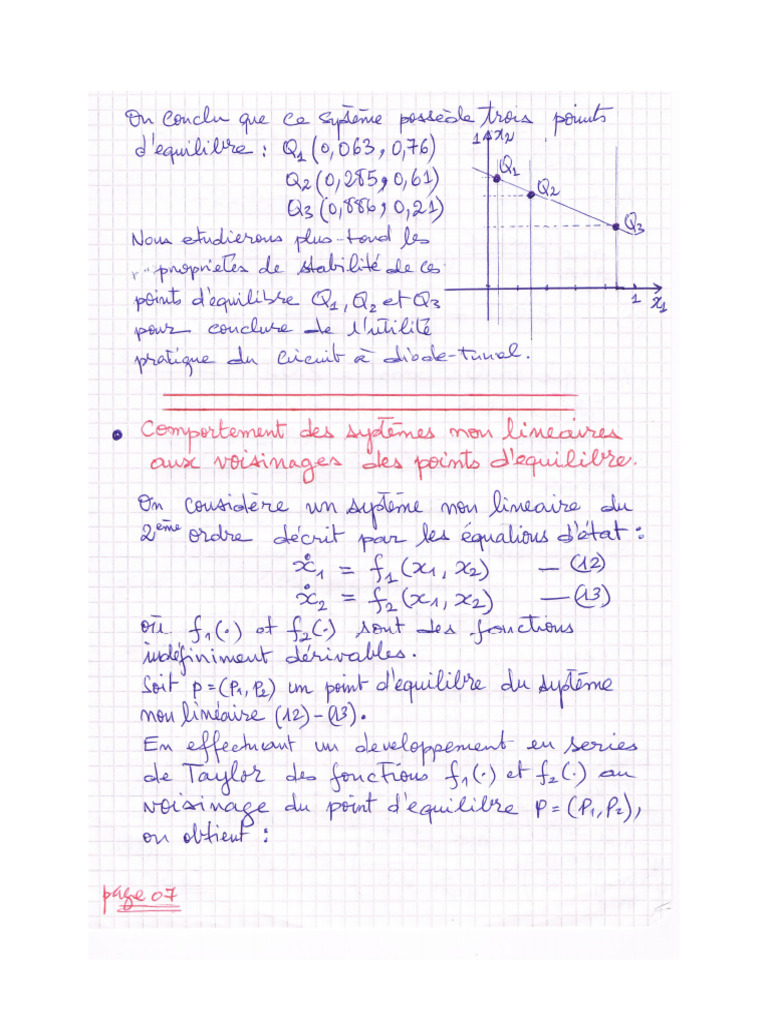 On conclu que ce système possède trois points
d'equilibre : Q1 (0,063, 0,76)
Q2 (0,285, 0,61)
Q3 (0,886, 0,21)
1 x2
Q1
Q2
Q3
1 x1
Nous etudierons plus-tond les
proprietés de stabilité de ces
points d'équilibre Q1, Q2 et Q3
pour conclure de l'utilité
pratique du circuit à diode-tunnel.
• Comportement des systèmes non lineaires
aux voisinages des points d'equilibre.
On considère un système non lineaire du
2ème ordre décrit par les équations d'état :
ẋ1 = f1(x1, x2) — (12)
ẋ2 = f2(x1, x2) — (13)
où f1(.) et f2(.) sont des fonctions
indéfiniment dérivables.
Soit p=(P1,P2) un point d'equilibre du système
non linéaire (12)-(13).
En effectuant un developpement en series
de Taylor des fonctions f1(.) et f2(.) au
voisinage du point d'equilibre P=(P1,P2),
on obtient :
page 07